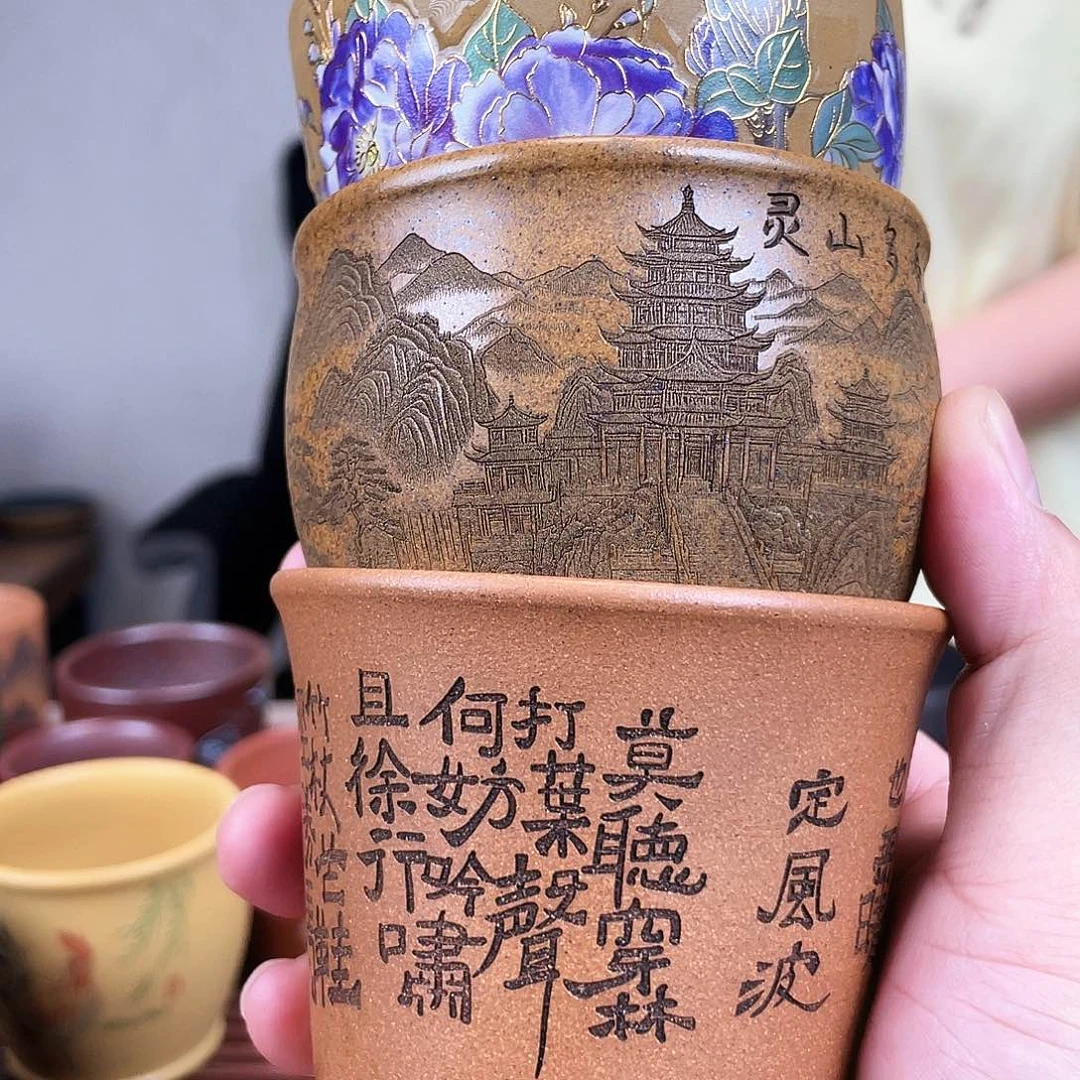 灵山多
定風波
莫聽穿林
打葉聲
何妨吟嘯
且徐行
竹杖芒鞋
也